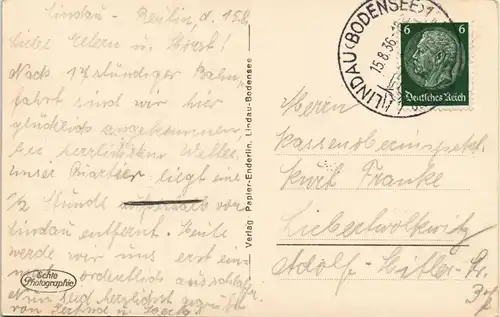 Lindau - Berlin, d. 15.8.
Liebe Eltern u. Horst!
Nach 17 stündiger Bahn-
fahrt sind wir hier
glücklich angekommen
bei herrlichstem Wetter.
Unser Quartier liegt eine
1/2 Stunde von
Lindau entfernt. Heute
werde wir uns erst ein
ordentlich ausschlafen.
Nun seid herzlichst gegrüßt
von Gertrud u.
Echte
Photographie
Verlag Papier-Enderlin, Lindau-Bodensee
LINDAU (BODENSEE) 1
15.8.36
6 6
Deutsches Reich
Herrn
Kassenobersekret.
Kurt Franke
Liebertwolkwitz
Adolf-Hitler-Str.
37